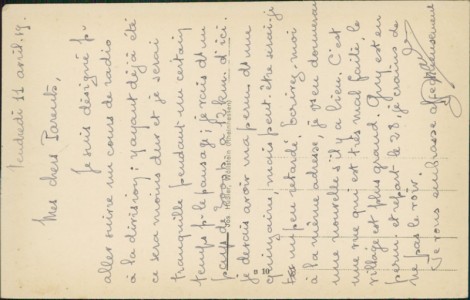 Vendredi 11 avril 19.
Mes chers Parents,
Je suis désigné pr
aller suivre un cours de radio
à la division; y ayant déjà été
ce sera moins dur et je serai
tranquille pendant un certain
temps pr le pansage; je vais d'un
à 12 km d'ici.
je devais avoir ma perm. d'une
quinzaine, mais peut-être serai-je
un peu retardé. Ecrivez-moi
à la même adresse, je v's en donnerai
une nouvelle s'il y a lieu. C'est
une rue qui est très mal faite le
village est plus grand. Guy est en
perm. et repart le 22, je crains de
ne pas le voir.
Je vous embrasse affectueusement